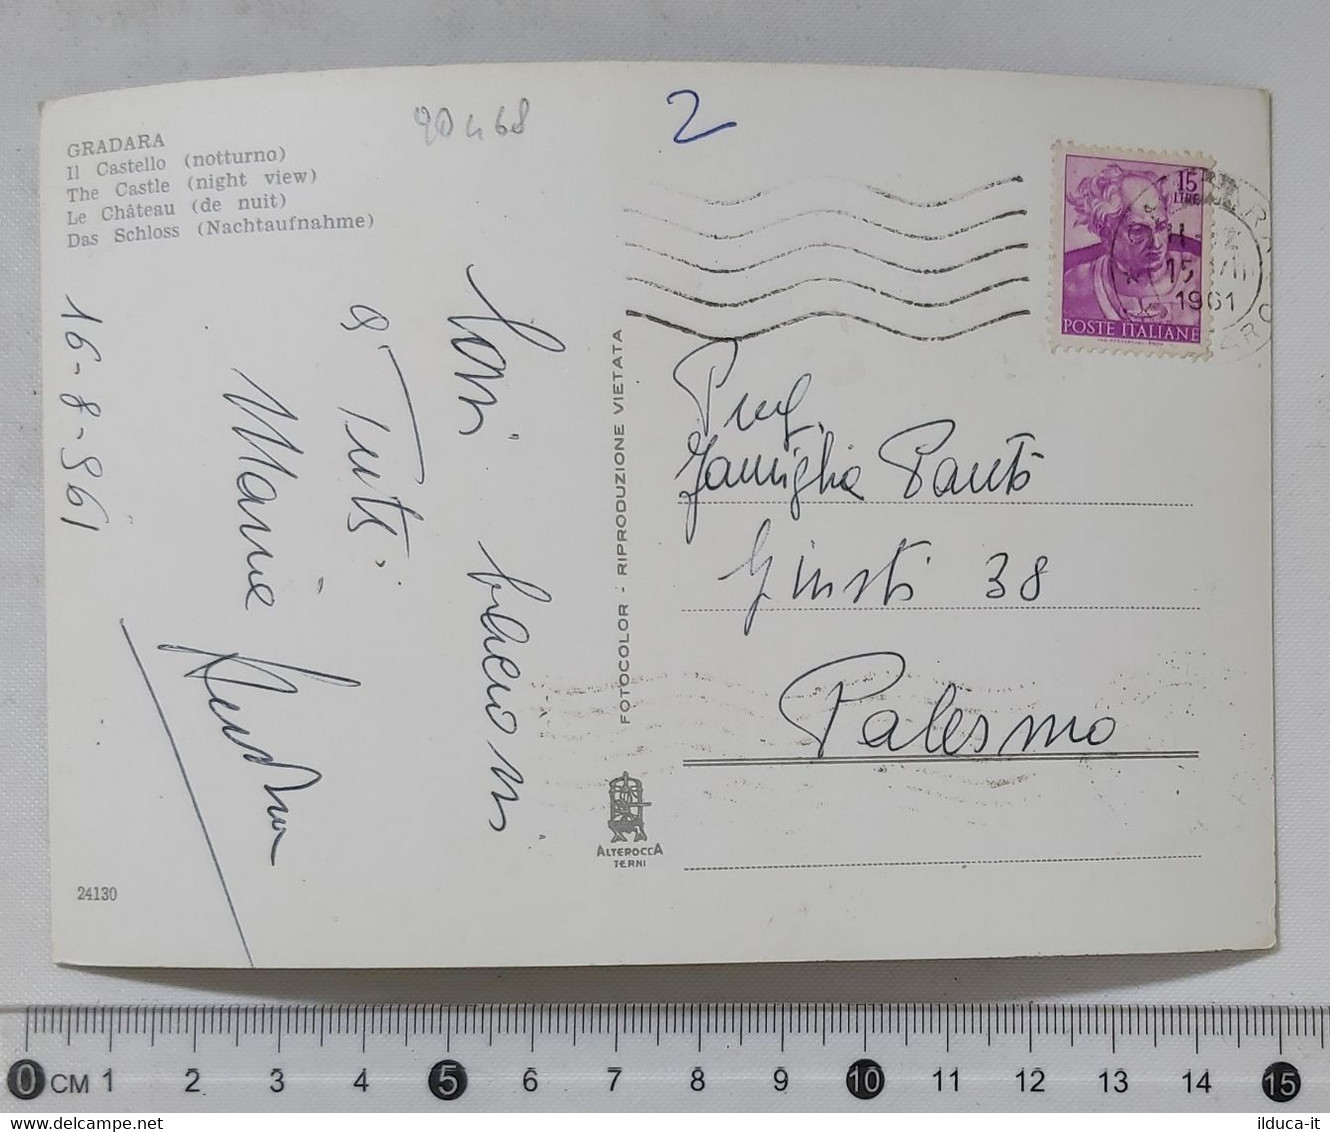 GRADARA
Il Castello (notturno)
The Castle (night view)
Le Château (de nuit)
Das Schloss (Nachtaufnahme)
90468
2
15
LIRE
15
1961
POSTE ITALIANE
16-8-961
Cari
bacioni
a Tutti
Maria
FOTOCOLOR - RIPRODUZIONE VIETATA
Famiglia
Giusti 38
Palermo
ALTEROCCA
TERNI
24130
0 CM 1 2 3 4 5 6 7 8 9 10 11 12 13 14 15
ilduca-it